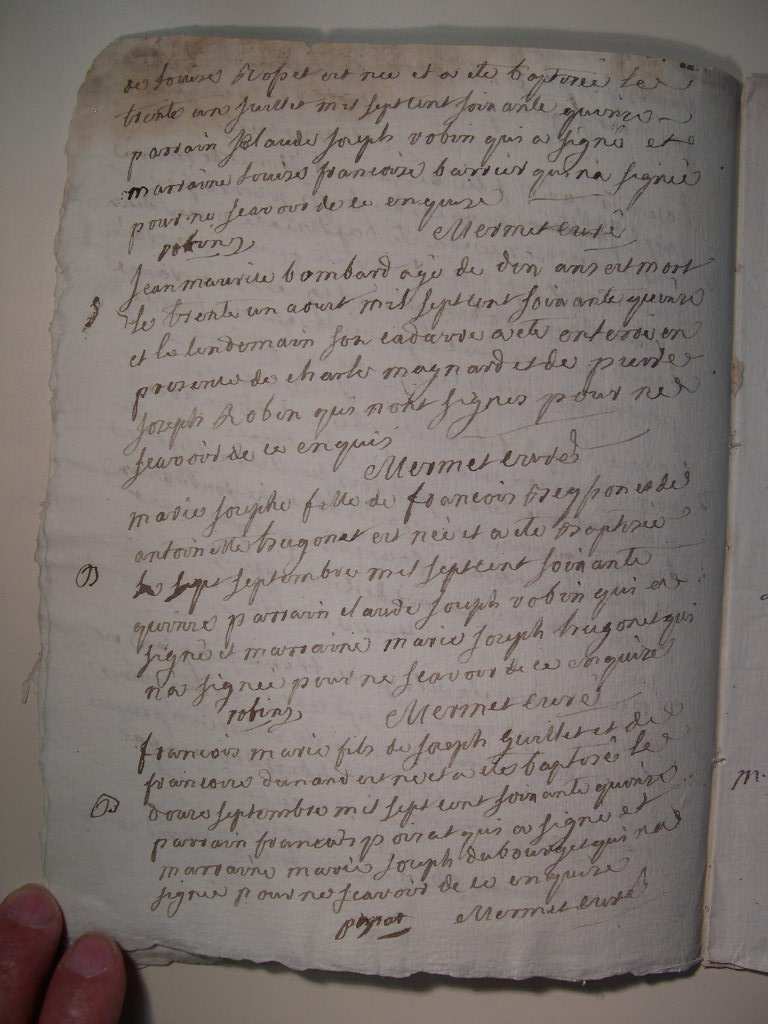 de Louise Rosset est née et a eté baptisée le
trente un juillet mil sept cent soixante quinze
parrain Claude Joseph robin qui a signé et
marraine Louise francoise barrier qui na signée
pour ne scavoir de ce enquise
robin Mermet curé
Jean maurice bombard agé de dix ans est mort
le trente un aout mil sept cent soixante quinze
et le lendemain son cadavre a eté enterré en
presence de charle magnard et de pierre
Joseph Robin qui n'ont signés pour ne
scavoir de ce enquis
Mermet curé
marie josephe fille de francois et de
antoinette hugonet est née et a eté baptisée
le sept septembre mil sept cent soixante
quinze parrain claude joseph robin qui a
signé et marraine marie joseph hugonet qui
na signée pour ne scavoir de ce enquise
robin Mermet curé
francois marie fils de joseph guillet et de
francoise dunand est né et a eté baptisé le
douze septembre mil sept cent soixante quinze
parrain francois poirat qui a signé et
marraine marie joseph dubourget qui na
signée pour ne scavoir de ce enquise
Mermet curé
m.